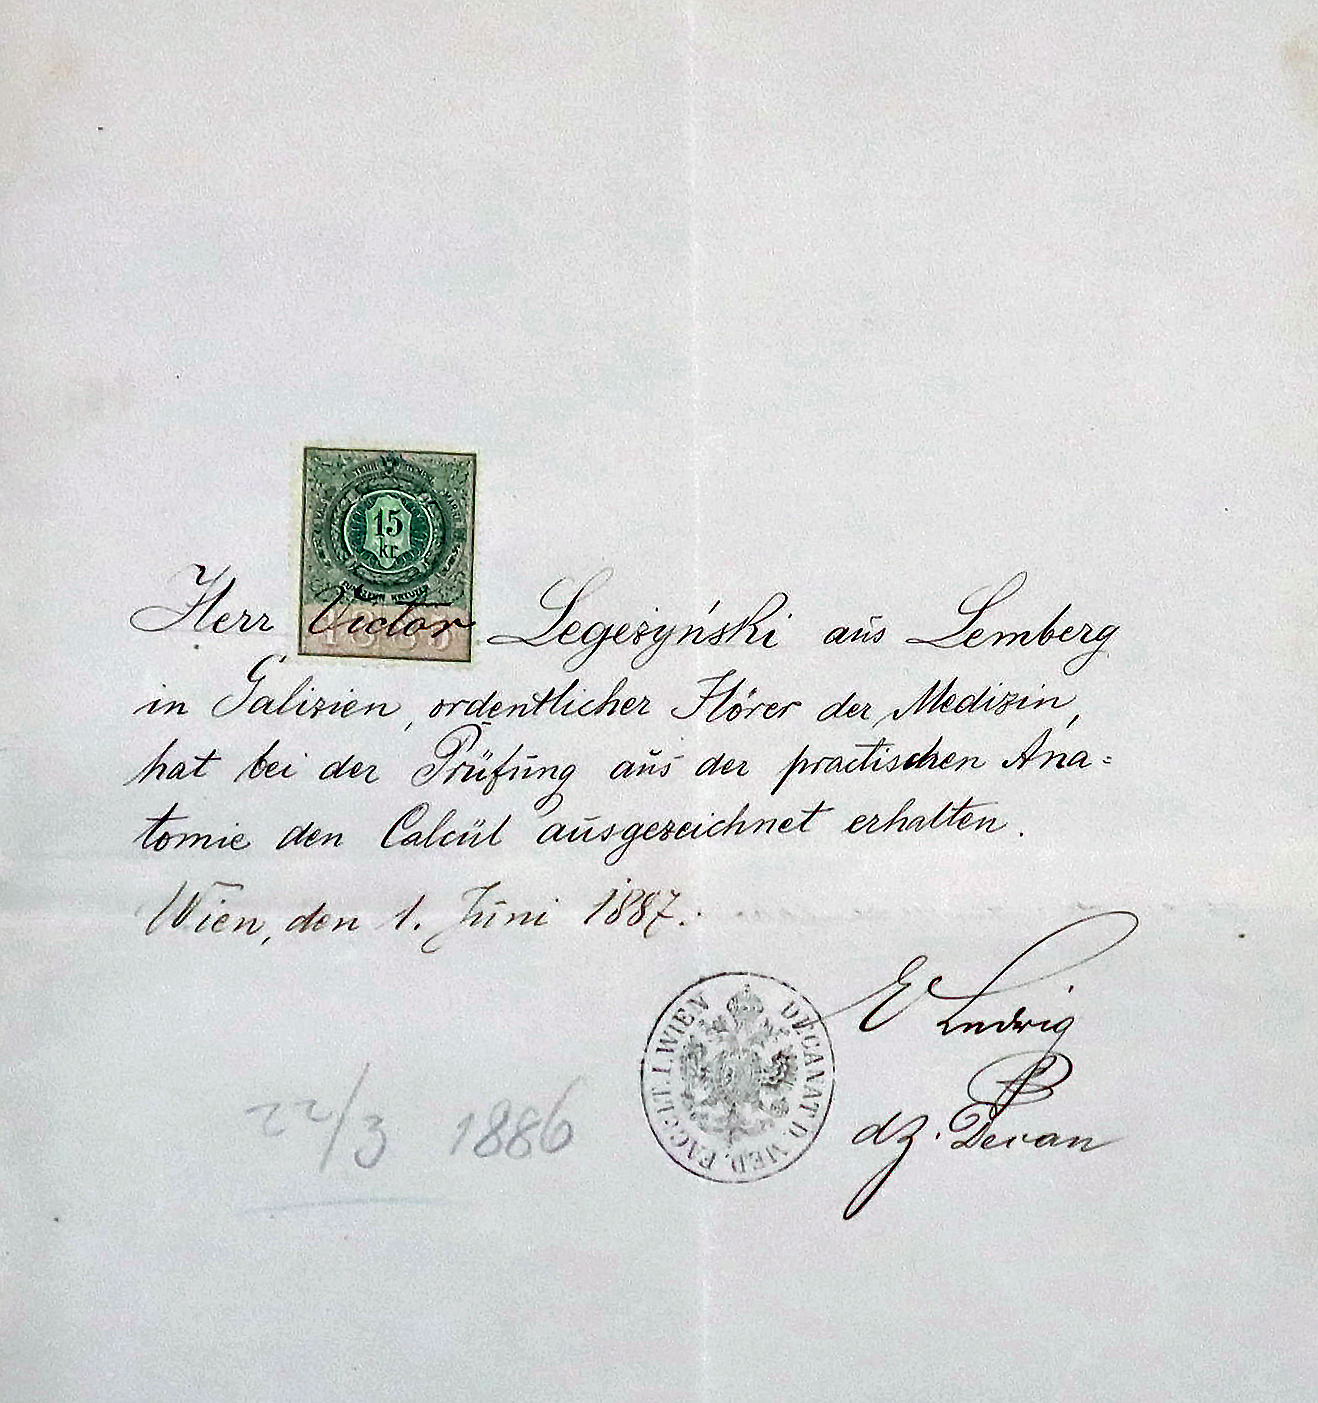 15
kr
FÜNFZEHN KREUZER
Herr Victor Legezyński aus Lemberg
in Galizien, ordentlicher Hörer der Medizin,
hat bei der Prüfung aus der practischen Ana=
tomie den Calcül ausgezeichnet erhalten.
Wien, den 1. Juni 1887.
E Ludwig
dz. Decan
DECANAT D. MED. FACULT. I. WIEN
22/3 1886